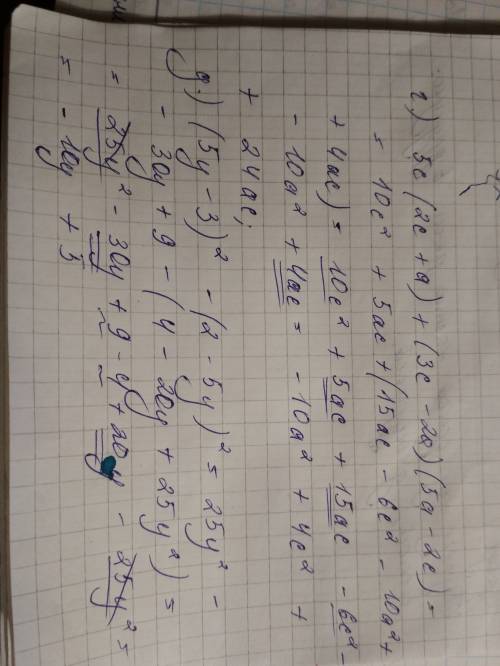 г) 5c(2c + a) + (3c - 2a)(5a - 2c) =
= 10c² + 5ac + (15ac - 6c² - 10a² +
+ 4ac) = 10c² + 5ac + 15ac - 6c² -
- 10a² + 4ac = - 10a² + 4c² +
+ 24ac;
g) (5y - 3)² - (2 - 5y)² = 25y² -
- 30y + 9 - (4 - 20y + 25y²) =
= 25y² - 30y + 9 - 4 + 20y - 25y² =
= - 10y + 3